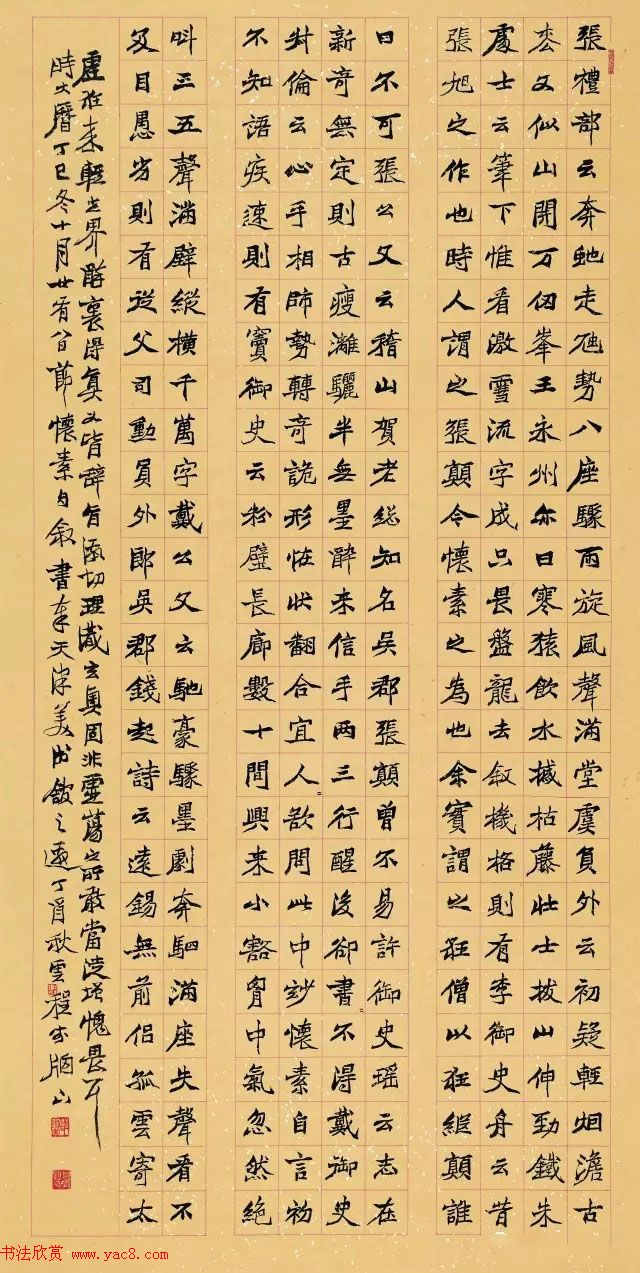 張禮部云奔虵走虺勢入座驟雨旋風聲滿堂盧員外云初疑輕烟澹古
松又似山開万仞峯王永州邕曰寒猿飲水撼枯藤壯士拔山伸勁鐵朱
處士云筆下惟看激電流字成只畏盤龍去叙機格則有李御史舟云昔
張旭之作也時人謂之張顛今懷素之為也余實謂之狂僧以狂繼顛誰
曰不可張公又云稽山賀老總知名吳郡張顛曾不易許御史瑶云志在
新奇無定則古瘦漓驪半無墨醉来信手兩三行醒後卻書不得戴御史
叔倫云心手相師勢轉奇詭形怪狀翻合宜人欲問此中妙懷素自言初
不知語疾速則有竇御史云粉壁長廊數十間興来小豁胷中氣忽然絶
叫三五聲滿壁縱橫千萬字戴公又云馳豪驟墨劇奔駟滿座失聲看不
及目愚劣則有從父司勳員外郎吳郡錢起詩云遠錫無前侶孤雲寄太
虛狂来輕世界醉裏得真如皆辭旨激切理識玄奧固非虛蕩之所敢當徒增愧畏耳
時大曆丁巳冬十月廿有八日節懷素自叙書奉天津美術館之邀丁酉秋
书法欣赏 www.yac8.com